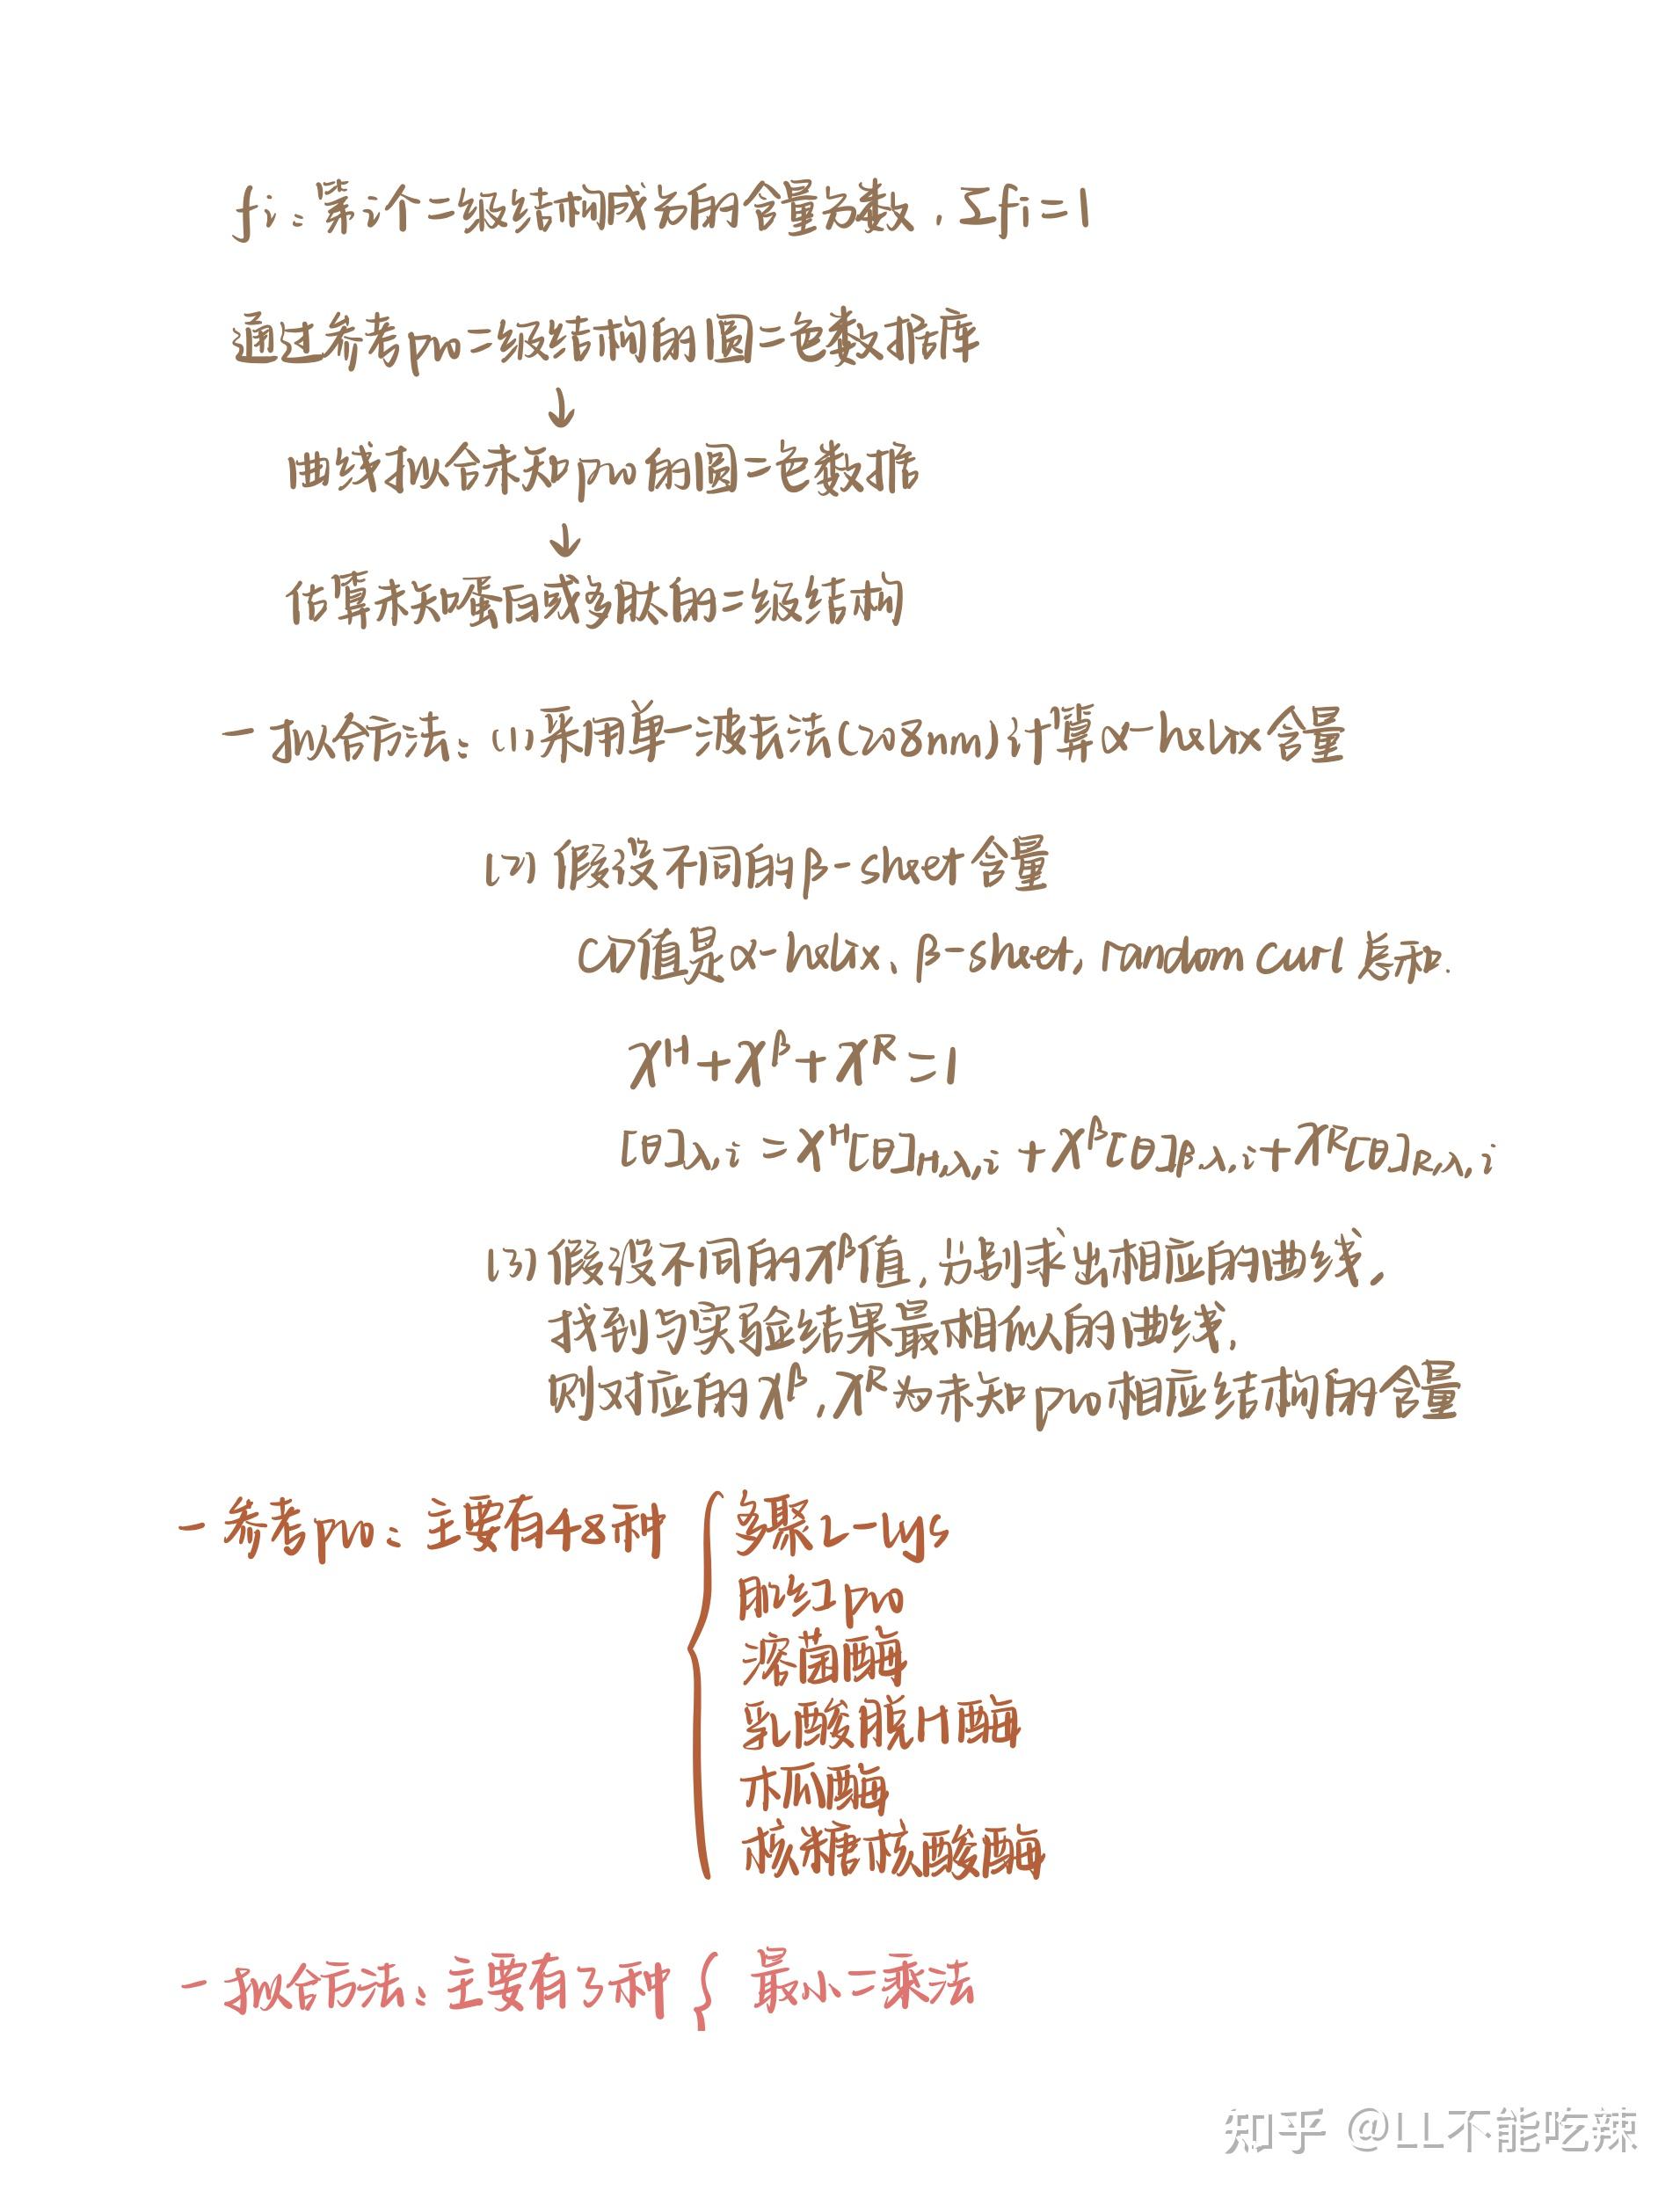 fi：第i个二级结构成分的含量分数，Σfi=1
通过参考pro二级结构的圆二色数据库
↓
曲线拟合未知pro的圆二色数据
↓
估算未知蛋白或多肽的二级结构
一拟合方法：(1)采用单一波长法(208nm)计算α-helix含量
(2)假设不同的β-sheet含量
CD值是α-helix、β-sheet，random curl总和．
X^H+X^β+X^R=1
[θ]λ,i=X^H[θ]H,λ,i+X^β[θ]β,λ,i+X^R[θ]R,λ,i
(3)假设不同的X^β值，分别求出相应的曲线，
找到与实验结果最相似的曲线，
则对应的X^β，X^R为未知pro相应结构的含量
一参考pro：主要有48种{多聚L-lys
肌红pro
溶菌酶
乳酸脱H酶
木瓜酶
核糖核酸酶
一拟合方法：主要有3种{最小二乘法
知乎 @LL不能吃辣